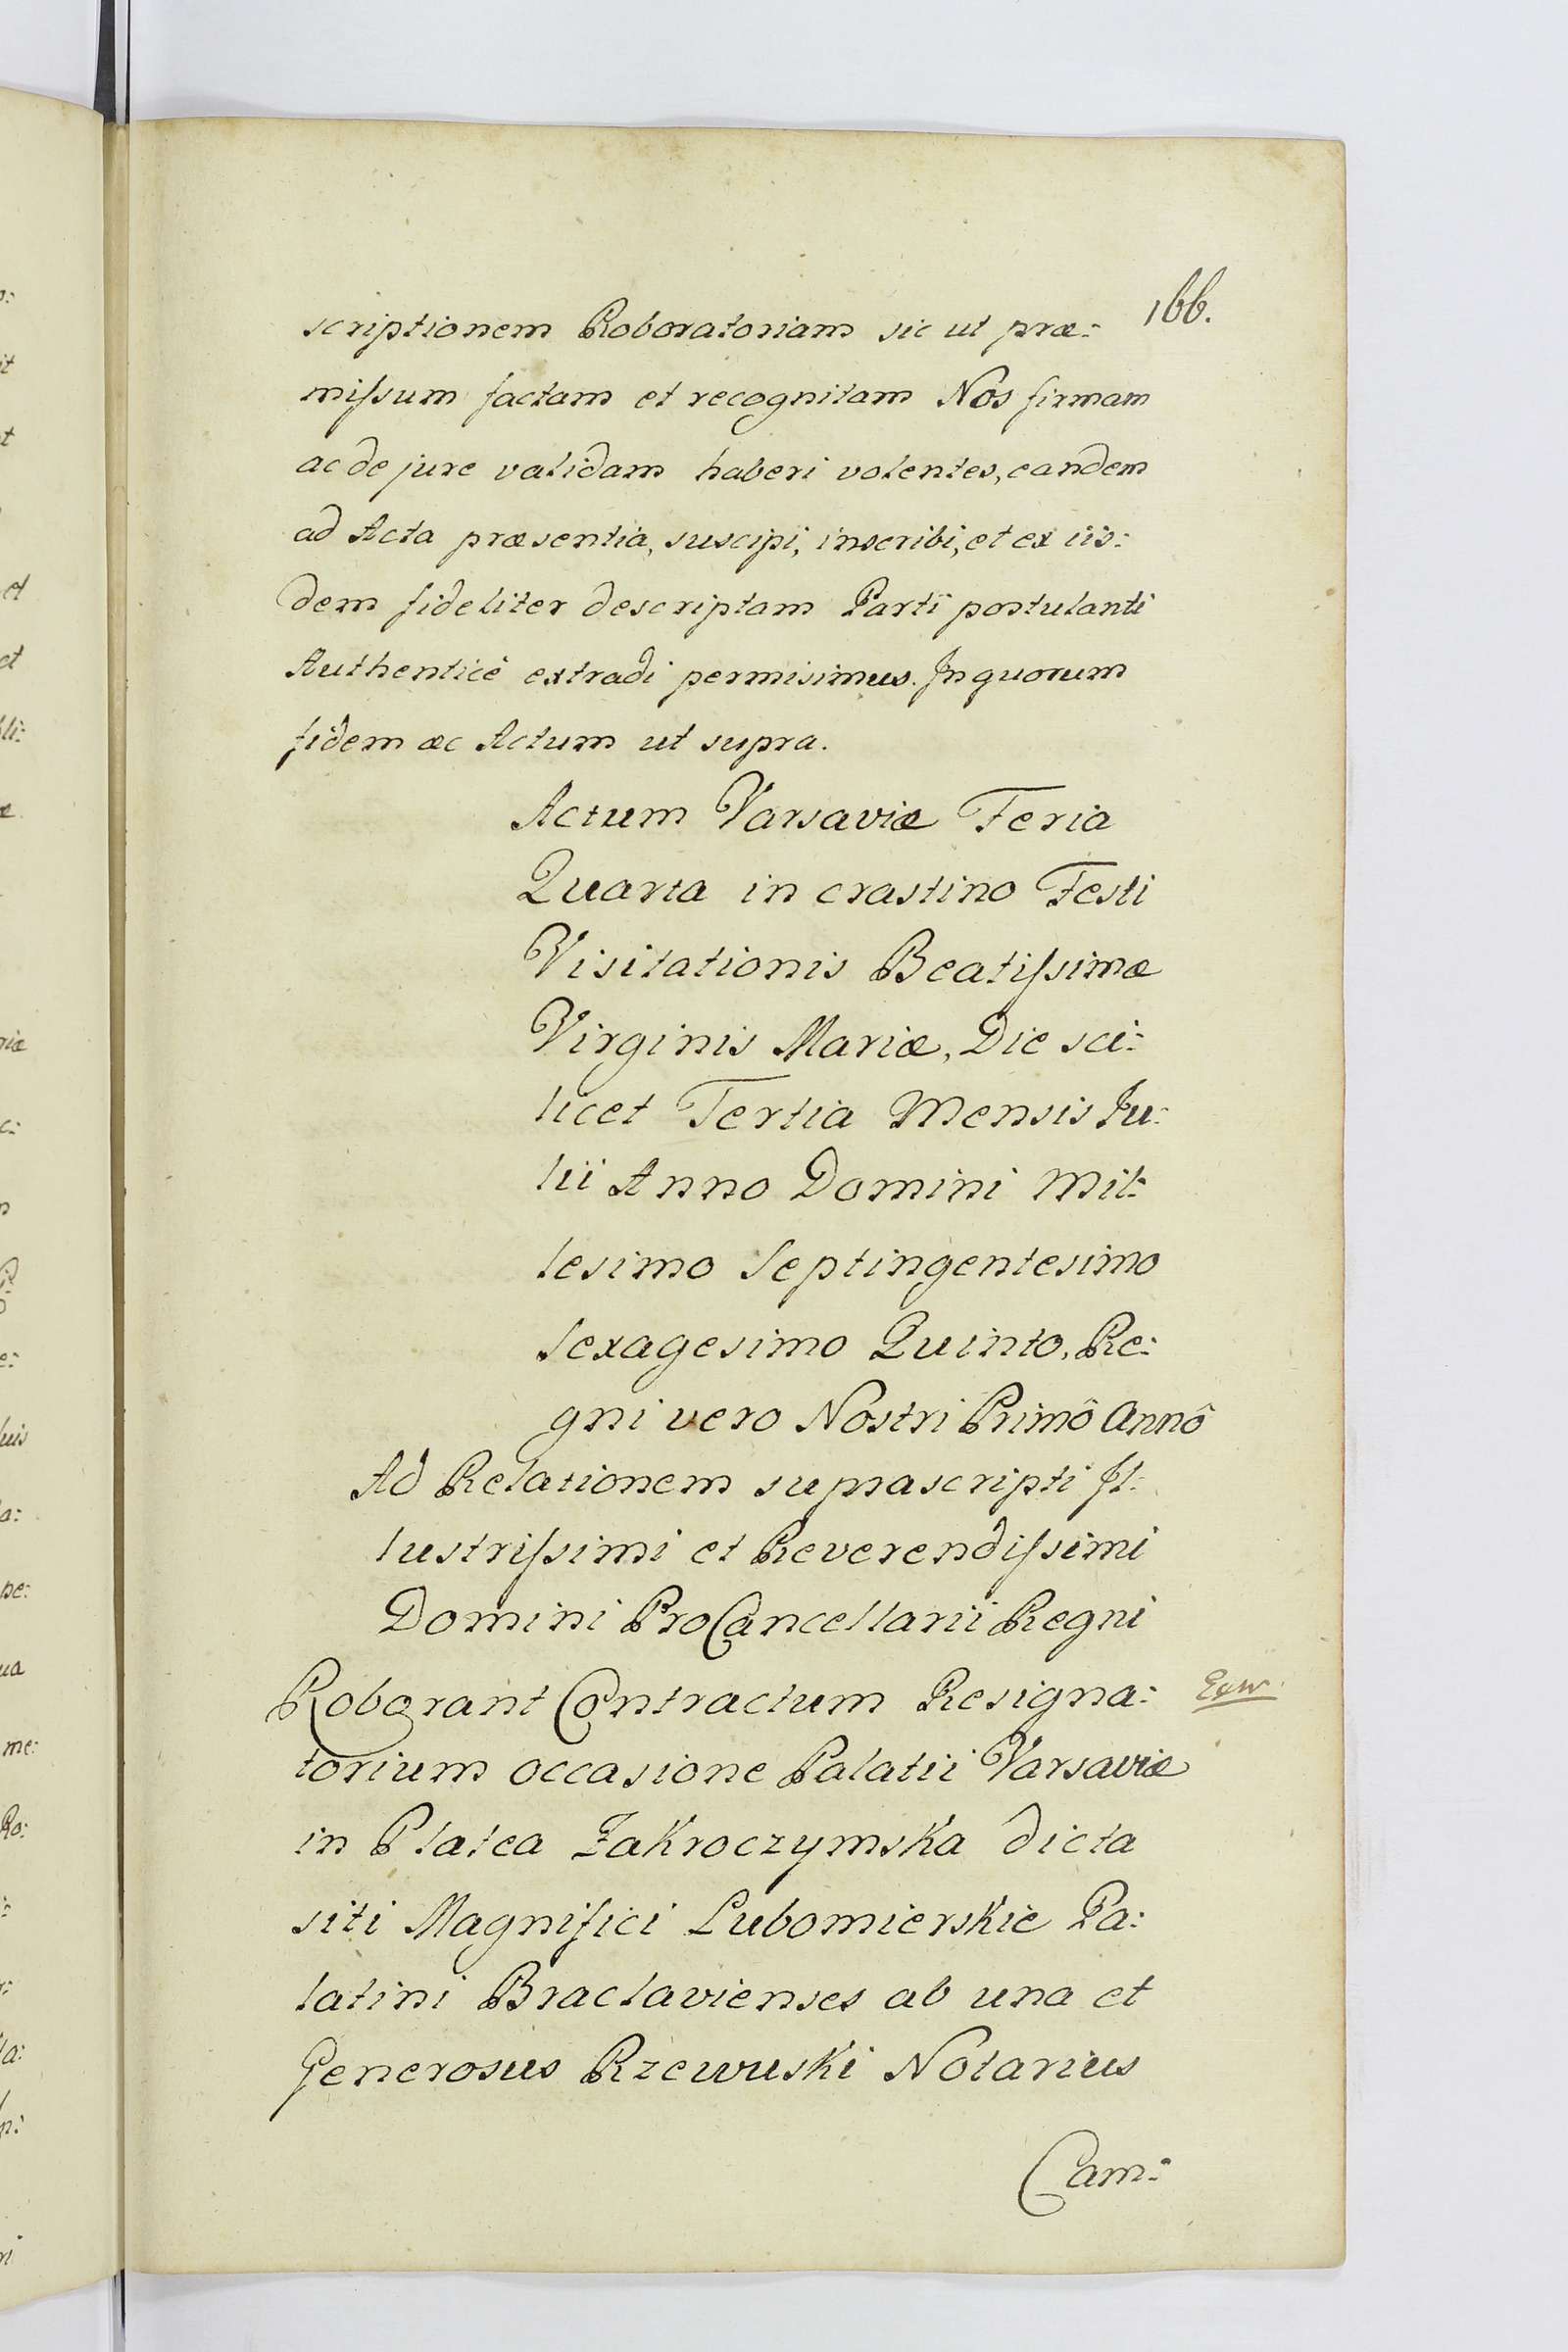 166.
scriptionem Roboratoriam sic ut præ:
miſsum factam et recognitam Nos firmam
ac de jure validam haberi volentes, eandem
ad Acta præsentia, suscipi, inscribi, et ex iis:
dem fideliter descriptam Parti postulanti
Authenticè extradi permisimus. In quorum
fidem ac Actum ut supra.
Actum Varsaviæ Feria
Quarta in crastino Festi
Visitationis Beatiſsimæ
Virginis Mariæ, Die sci:
licet Tertia Mensis Ju:
lii Anno Domini Mil:
lesimo Septingentesimo
Sexagesimo Quinto, Re:
gni vero Nostri Primô Annô
Ad Relationem suprascripti Il:
lustriſsimi et Reverendiſsimi
Domini ProCancellarii Regni
Roborant Contractum Resigna:
torium occasione Palatii Varsaviæ
in Platea Zakroczymska dicta
siti Magnifici Lubomierskie Pa:
latini Braclavienses ab una et
Generosus Rzewuski Notarius
Cam: